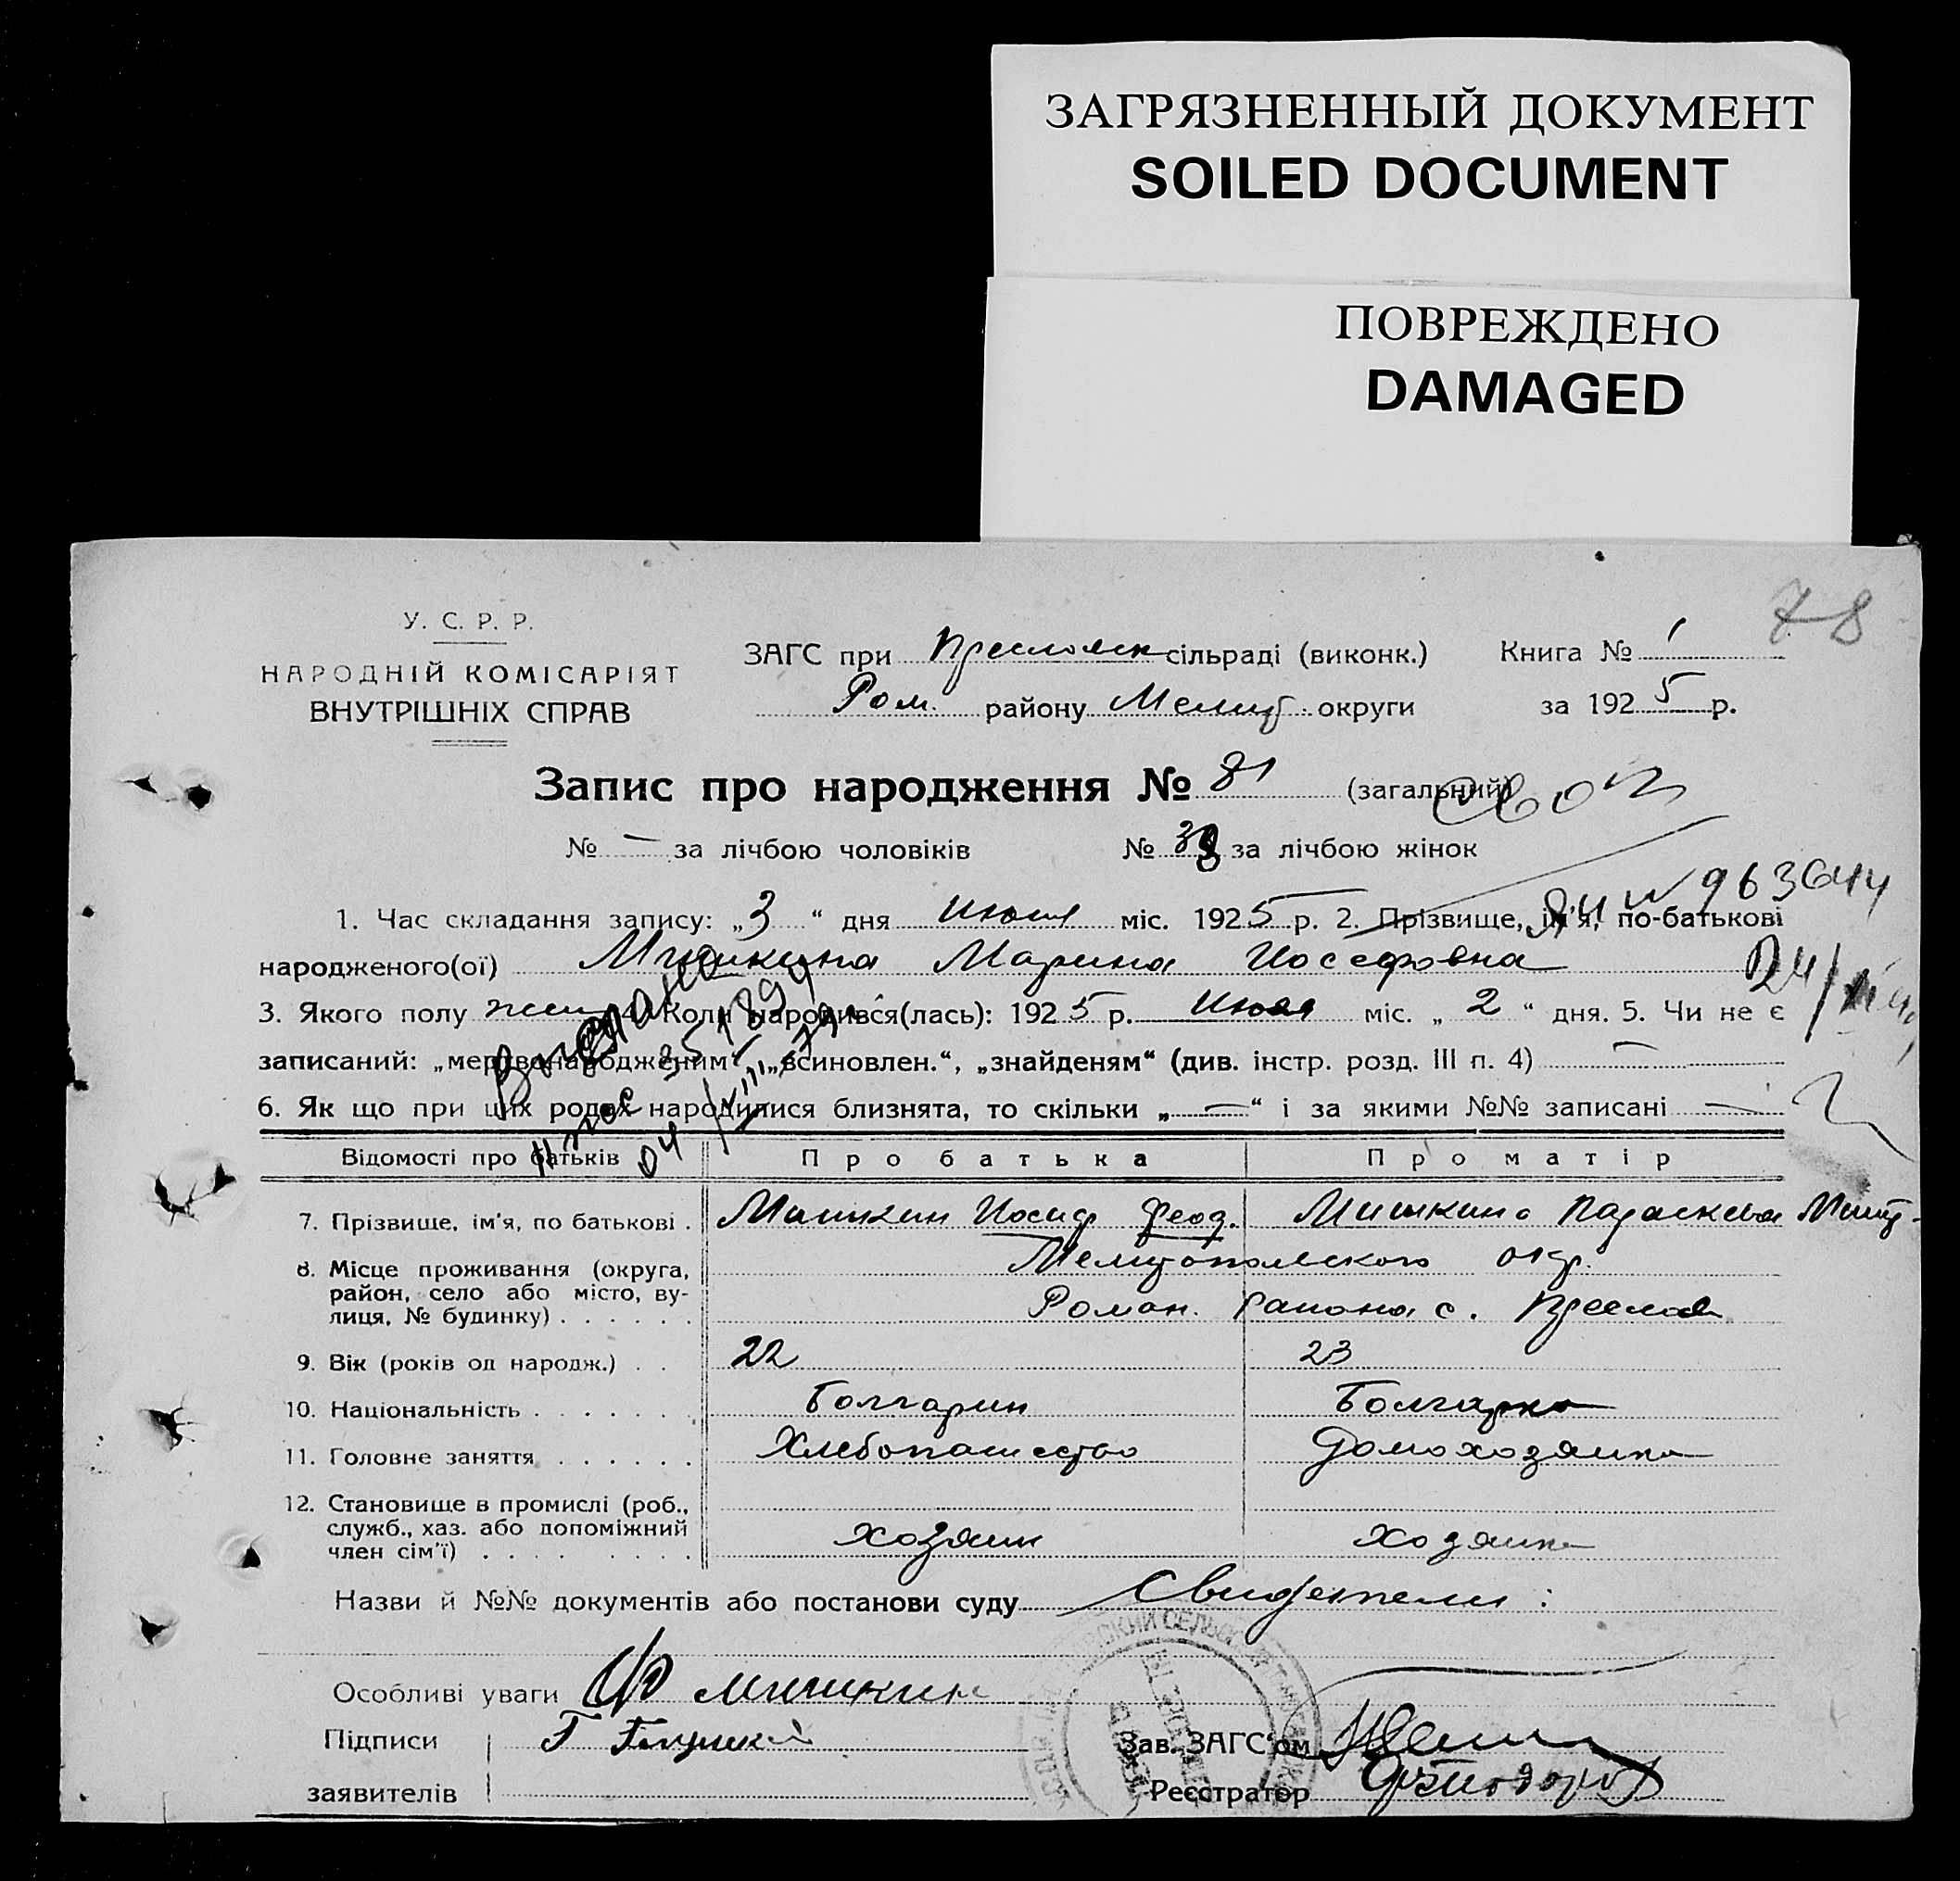 ЗАГРЯЗНЕННЫЙ ДОКУМЕНТ
SOILED DOCUMENT
ПОВРЕЖДЕНО
DAMAGED
78
У. С. Р. Р.
НАРОДНІЙ КОМІСАРІЯТ
ВНУТРІШНІХ СПРАВ
ЗАГС при Преславск сільраді (виконк.) Книга № 1
Ром. району Мелит. округи за 1925 р.
Запис про народження № 81 (загальний)
№ — за лічбою чоловіків № 38 за лічбою жінок
ЯИ № 963644
1. Час складання запису: „3“ дня Июля міс. 1925 р. 2. Прізвище, ім'я, по-батькові
народженого(ої) Мишкина Марина Иосефовна
3. Якого полу жен 4. Коли народився(лась): 1925 р. Июля міс. „2“ дня. 5. Чи не є
записаний: „мертвонародженим“, „всиновлен.“, „знайденям“ (див. інстр. розд. III п. 4) —
6. Як що при цих родах народилися близнята, то скільки „—“ і за якими №№ записані —
Відомості про батьків Про батька Про матір
7. Прізвище, ім'я, по батькові . Мишкин Иосиф Феод. Мишкина Параскева Мит-
8. Місце проживання (округа, район, село або місто, вулиця, № будинку) . . . . . . Мелитопольского окр.
Роман. района с. Преслав
9. Вік (років од народж.) . . 22 23
10. Національність . . . . . . . Болгарин Болгарка
11. Головне заняття . . . . . . Хлебопашество Домохозяйка
12. Становище в промислі (роб., служб., хаз. або допоміжний член сім'ї) . . . . . . . . хозяин хозяйка
Назви й №№ документів або постанови суду Свидетели:
Особливі уваги Ф Мишкин
Підписи
заявителів
Зав. ЗАГС'ом
Реєстратор